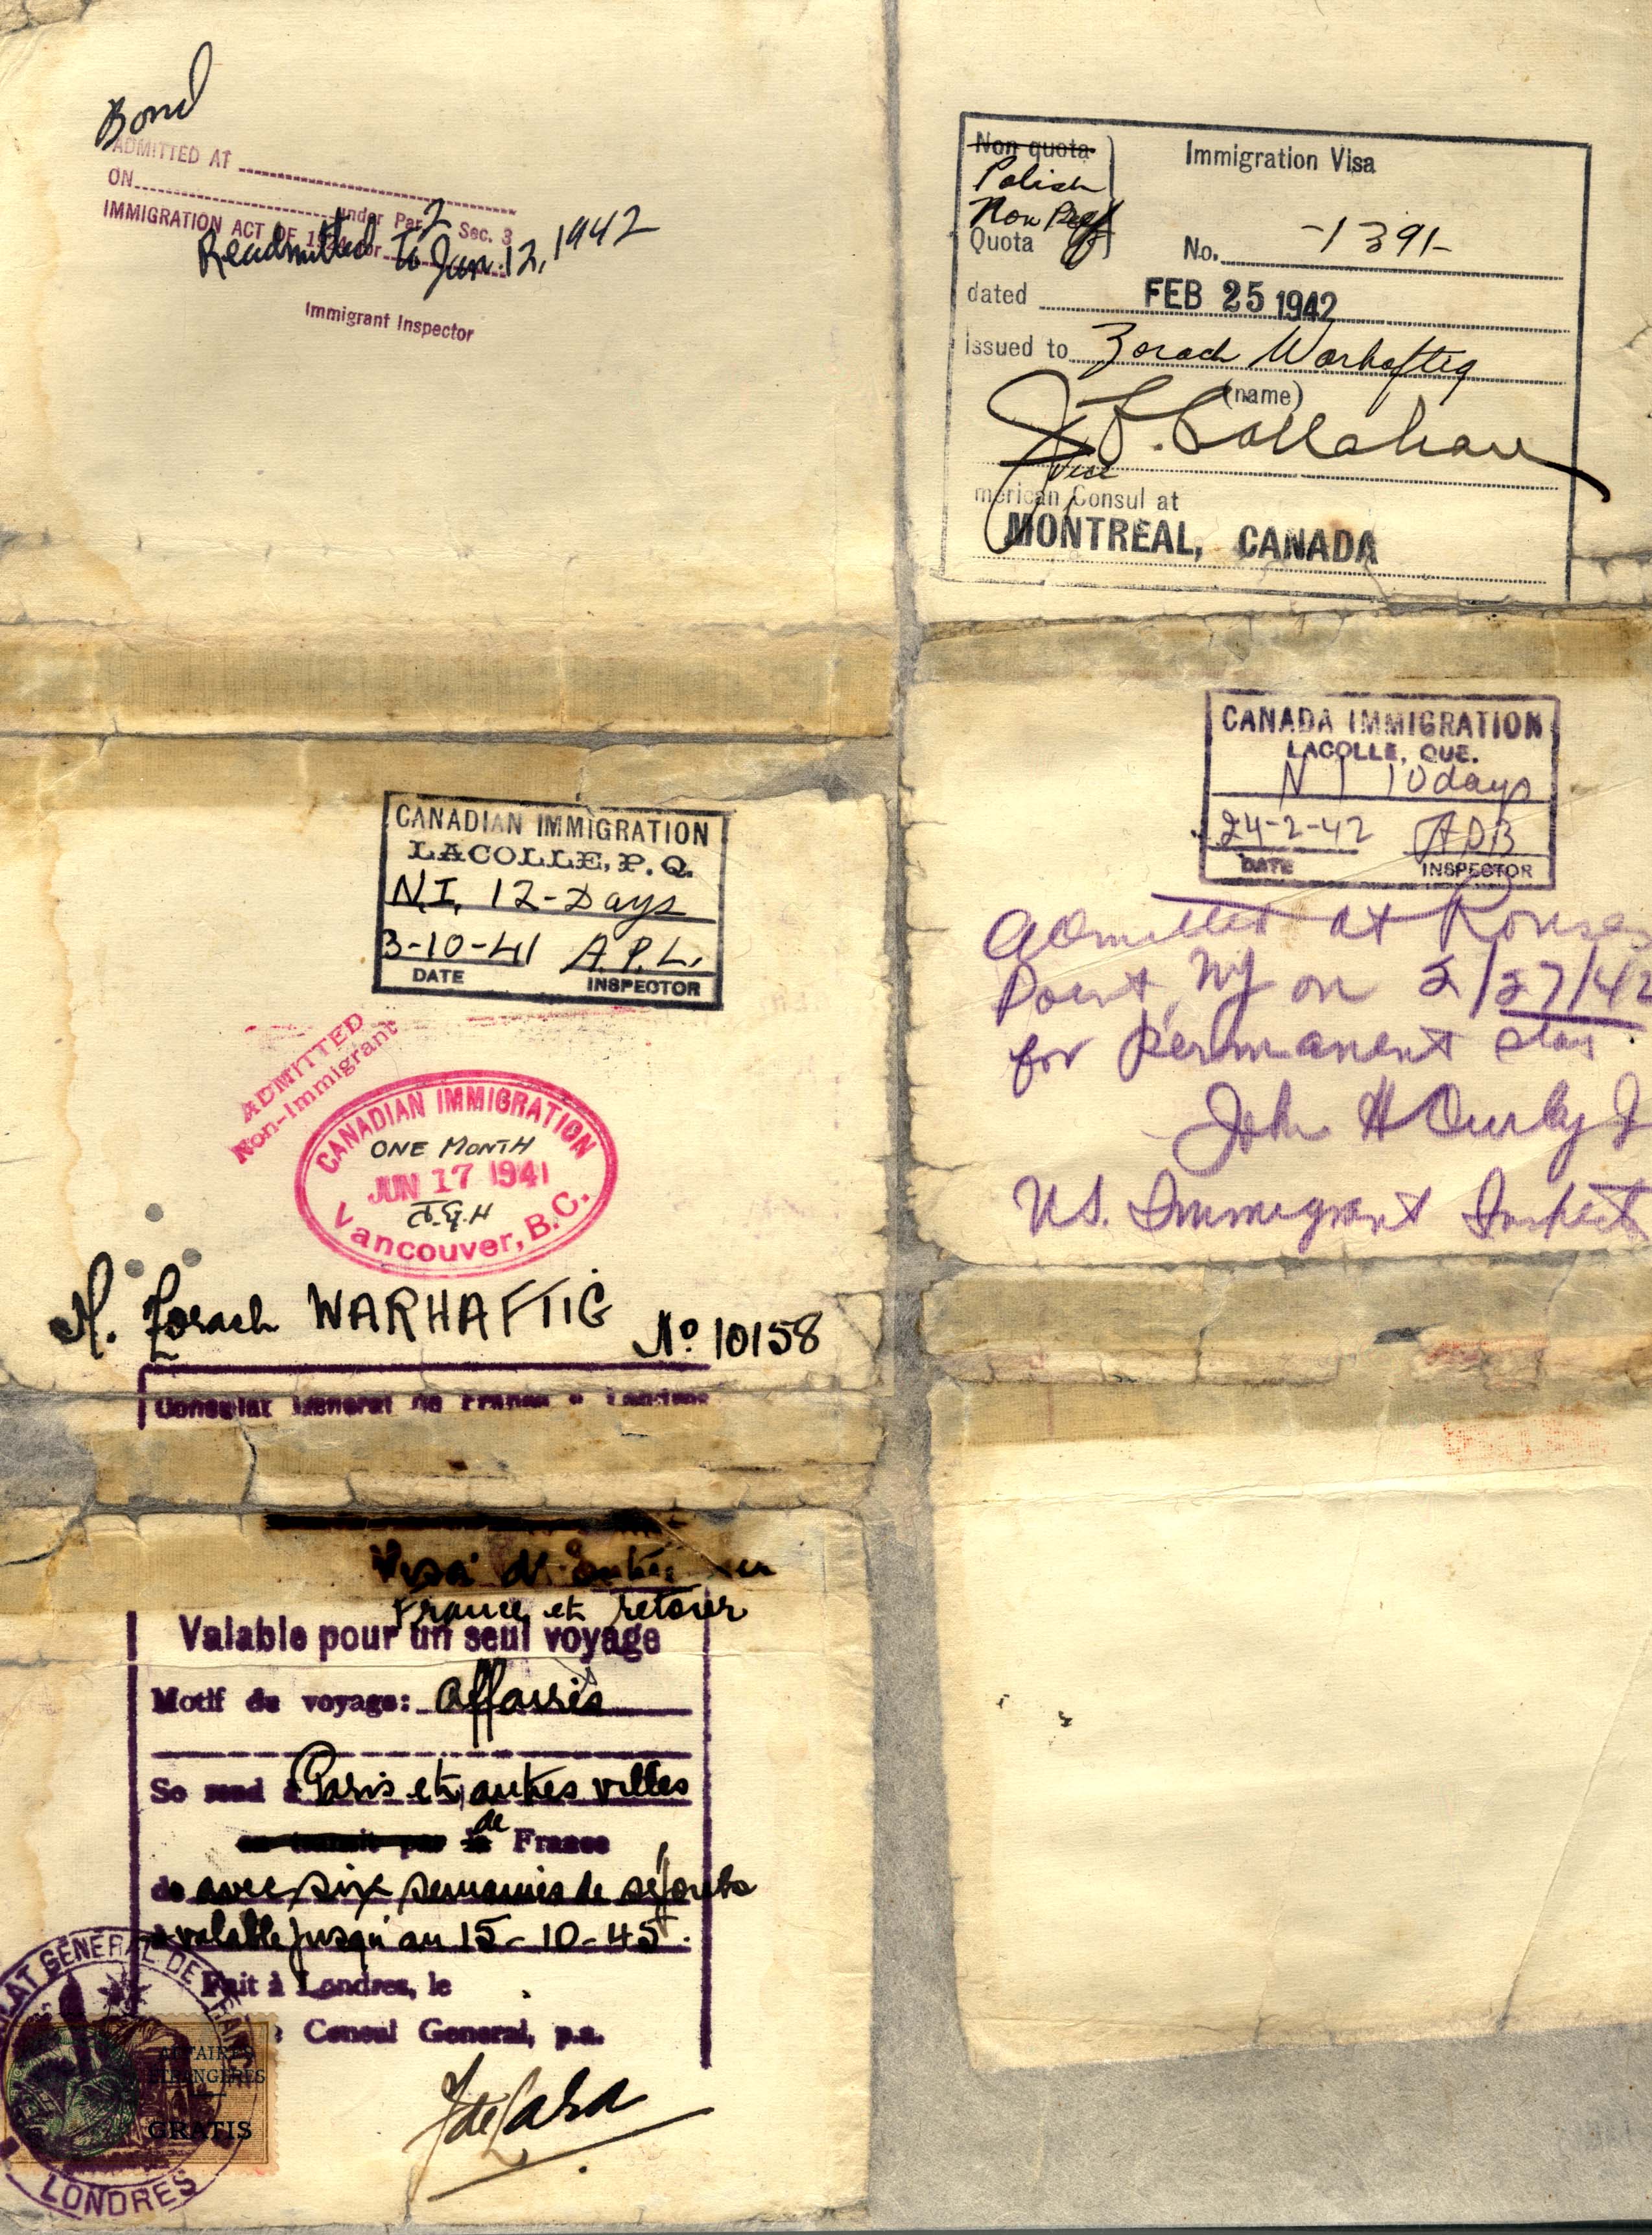 Bond
ADMITTED AT
ON
under Par. 2 Sec. 3
IMMIGRATION ACT OF 1924 for
Readmitted to Jan. 12, 1942
Immigrant Inspector
Non quota
Polish
Non Pref
Quota
Immigration Visa
No. -1391-
dated FEB 25 1942
issued to Zorach Warhaftig
(name)
J F. Callahan
Vice
merican Consul at
MONTREAL, CANADA
CANADIAN IMMIGRATION
LACOLLE, P.Q.
N.I. 12-Days
3-10-41 A.P.L.
DATE INSPECTOR
ADMITTED
Non-Immigrant
CANADIAN IMMIGRATION
ONE MONTH
JUN 17 1941
Vancouver, B.C.
M. Zorach WARHAFTIG No 10158
Consulat General de France a Londres
CANADA IMMIGRATION
LACOLLE, QUE.
N I 10 days
24-2-42 ADB
DATE INSPECTOR
Admitted at Rouses
Point, NY on 2/27/42
for permanent stay.
John H Curley J
US. Immigrant Inspect
Visa d'Entrée en
France et retour
Valable pour un seul voyage
Motif du voyage: affaires
Se rend à Paris et autres villes
de France
de avec six semaines de séjour
valable jusqu'au 15-10-45.
Fait à Londres, le
Consul General, p.a.
J de Lara
LAT GENERAL DE FRANCE
AFFAIRES
ETRANGERES
GRATIS
LONDRES